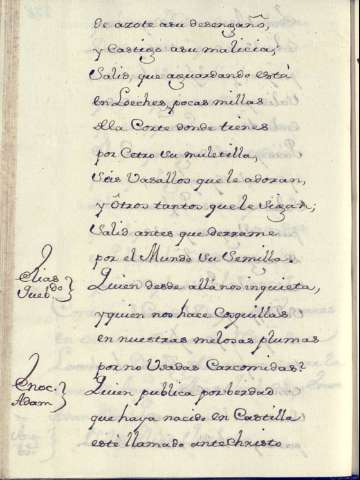 de azote a su desengaño,
y Castigo a su malicia;
Salid, que aguardando está
en Loeches, pocas millas
de la Corte donde tienes
por Cetro su muletilla,
Seis Vasallos que le adoran,
y Otros tantos que le sigan;
Salid antes que derrame
por el Mundo su Semilla.
Elias
Quien desde allá nos inquieta,
y quien nos hace Cosquillas
en nuestras melosas plumas
por no Usadas Carcomidas?
Enoc.
Adam
Quien publica por berdad
que haya nacido en Castilla
este llamado ante Christo